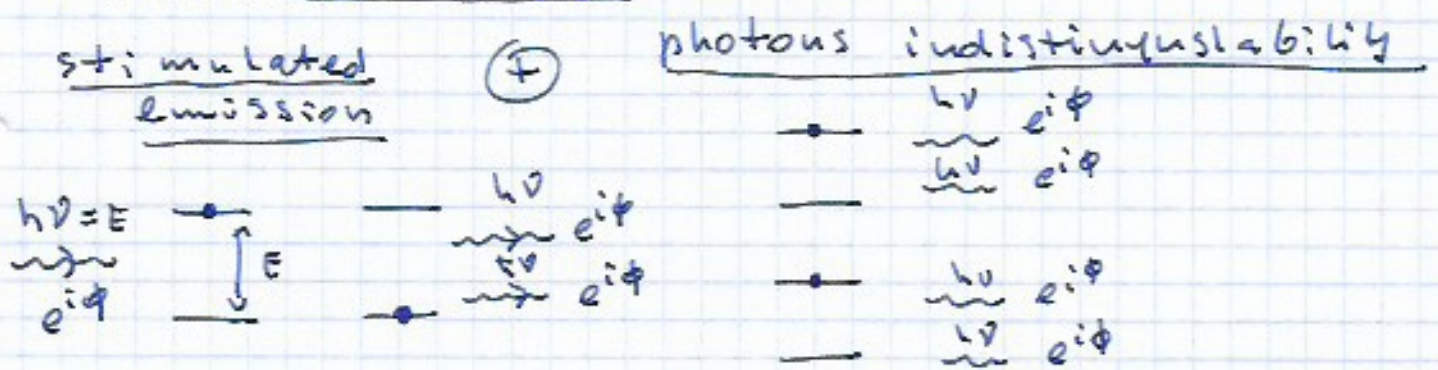 stimulated
emission
+
photons indistinquslability
hν = E
e^{iφ}
E
hν
e^{iφ}
hν
e^{iφ}
hν
e^{iφ}
hν
e^{iφ}
hν
e^{iφ}
hν
e^{iφ}